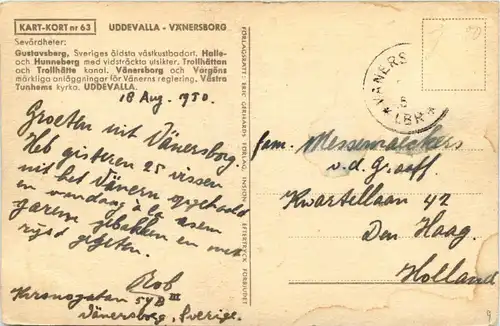 KART-KORT nr 63 UDDEVALLA - VÄNERSBORG
Sevärdheter:
Gustavsberg, Sveriges äldsta västkustbadort. Halle-
och Hunneberg med vidsträckta utsikter. Trollhättan
och Trollhätte kanal. Vänersborg och Vargöns
märkliga anläggningar för Vänerns reglering. Västra
Tunhems kyrka. UDDEVALLA.
18 Aug. 1950.
Groeten uit Vänersborg.
Heb gisteren 25 vissen
uit het Vänern opgehaald
en vandaag à la
garem gebakken en met
rijst gegeten.
Rob
Kronogatan 54B III
Vänersborg, Sverige.
FÖRLAGSRÄTT: ERIC GERHARDS FÖRLAG, ENSJÖN EFTERTRYCK FÖRBJUDET
VÄNERS
LBR
fam. Messemaeckers
v.d. Graaff
Kwartellaan 42
Den Haag
Holland